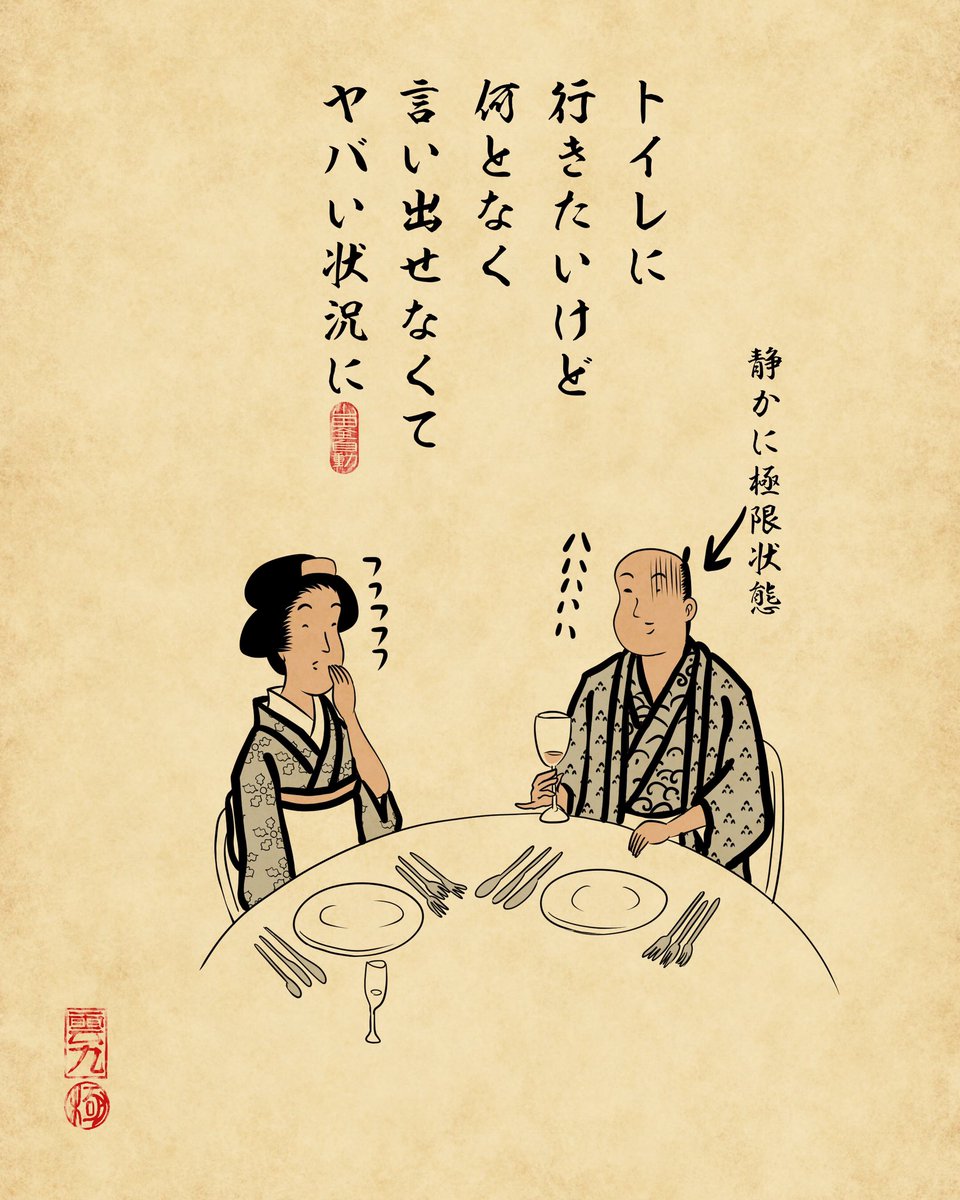 トイレに
行きたいけど
何となく
言い出せなくて
ヤバい状況に
静かに極限状態
ハハハハハ
フフフフフ